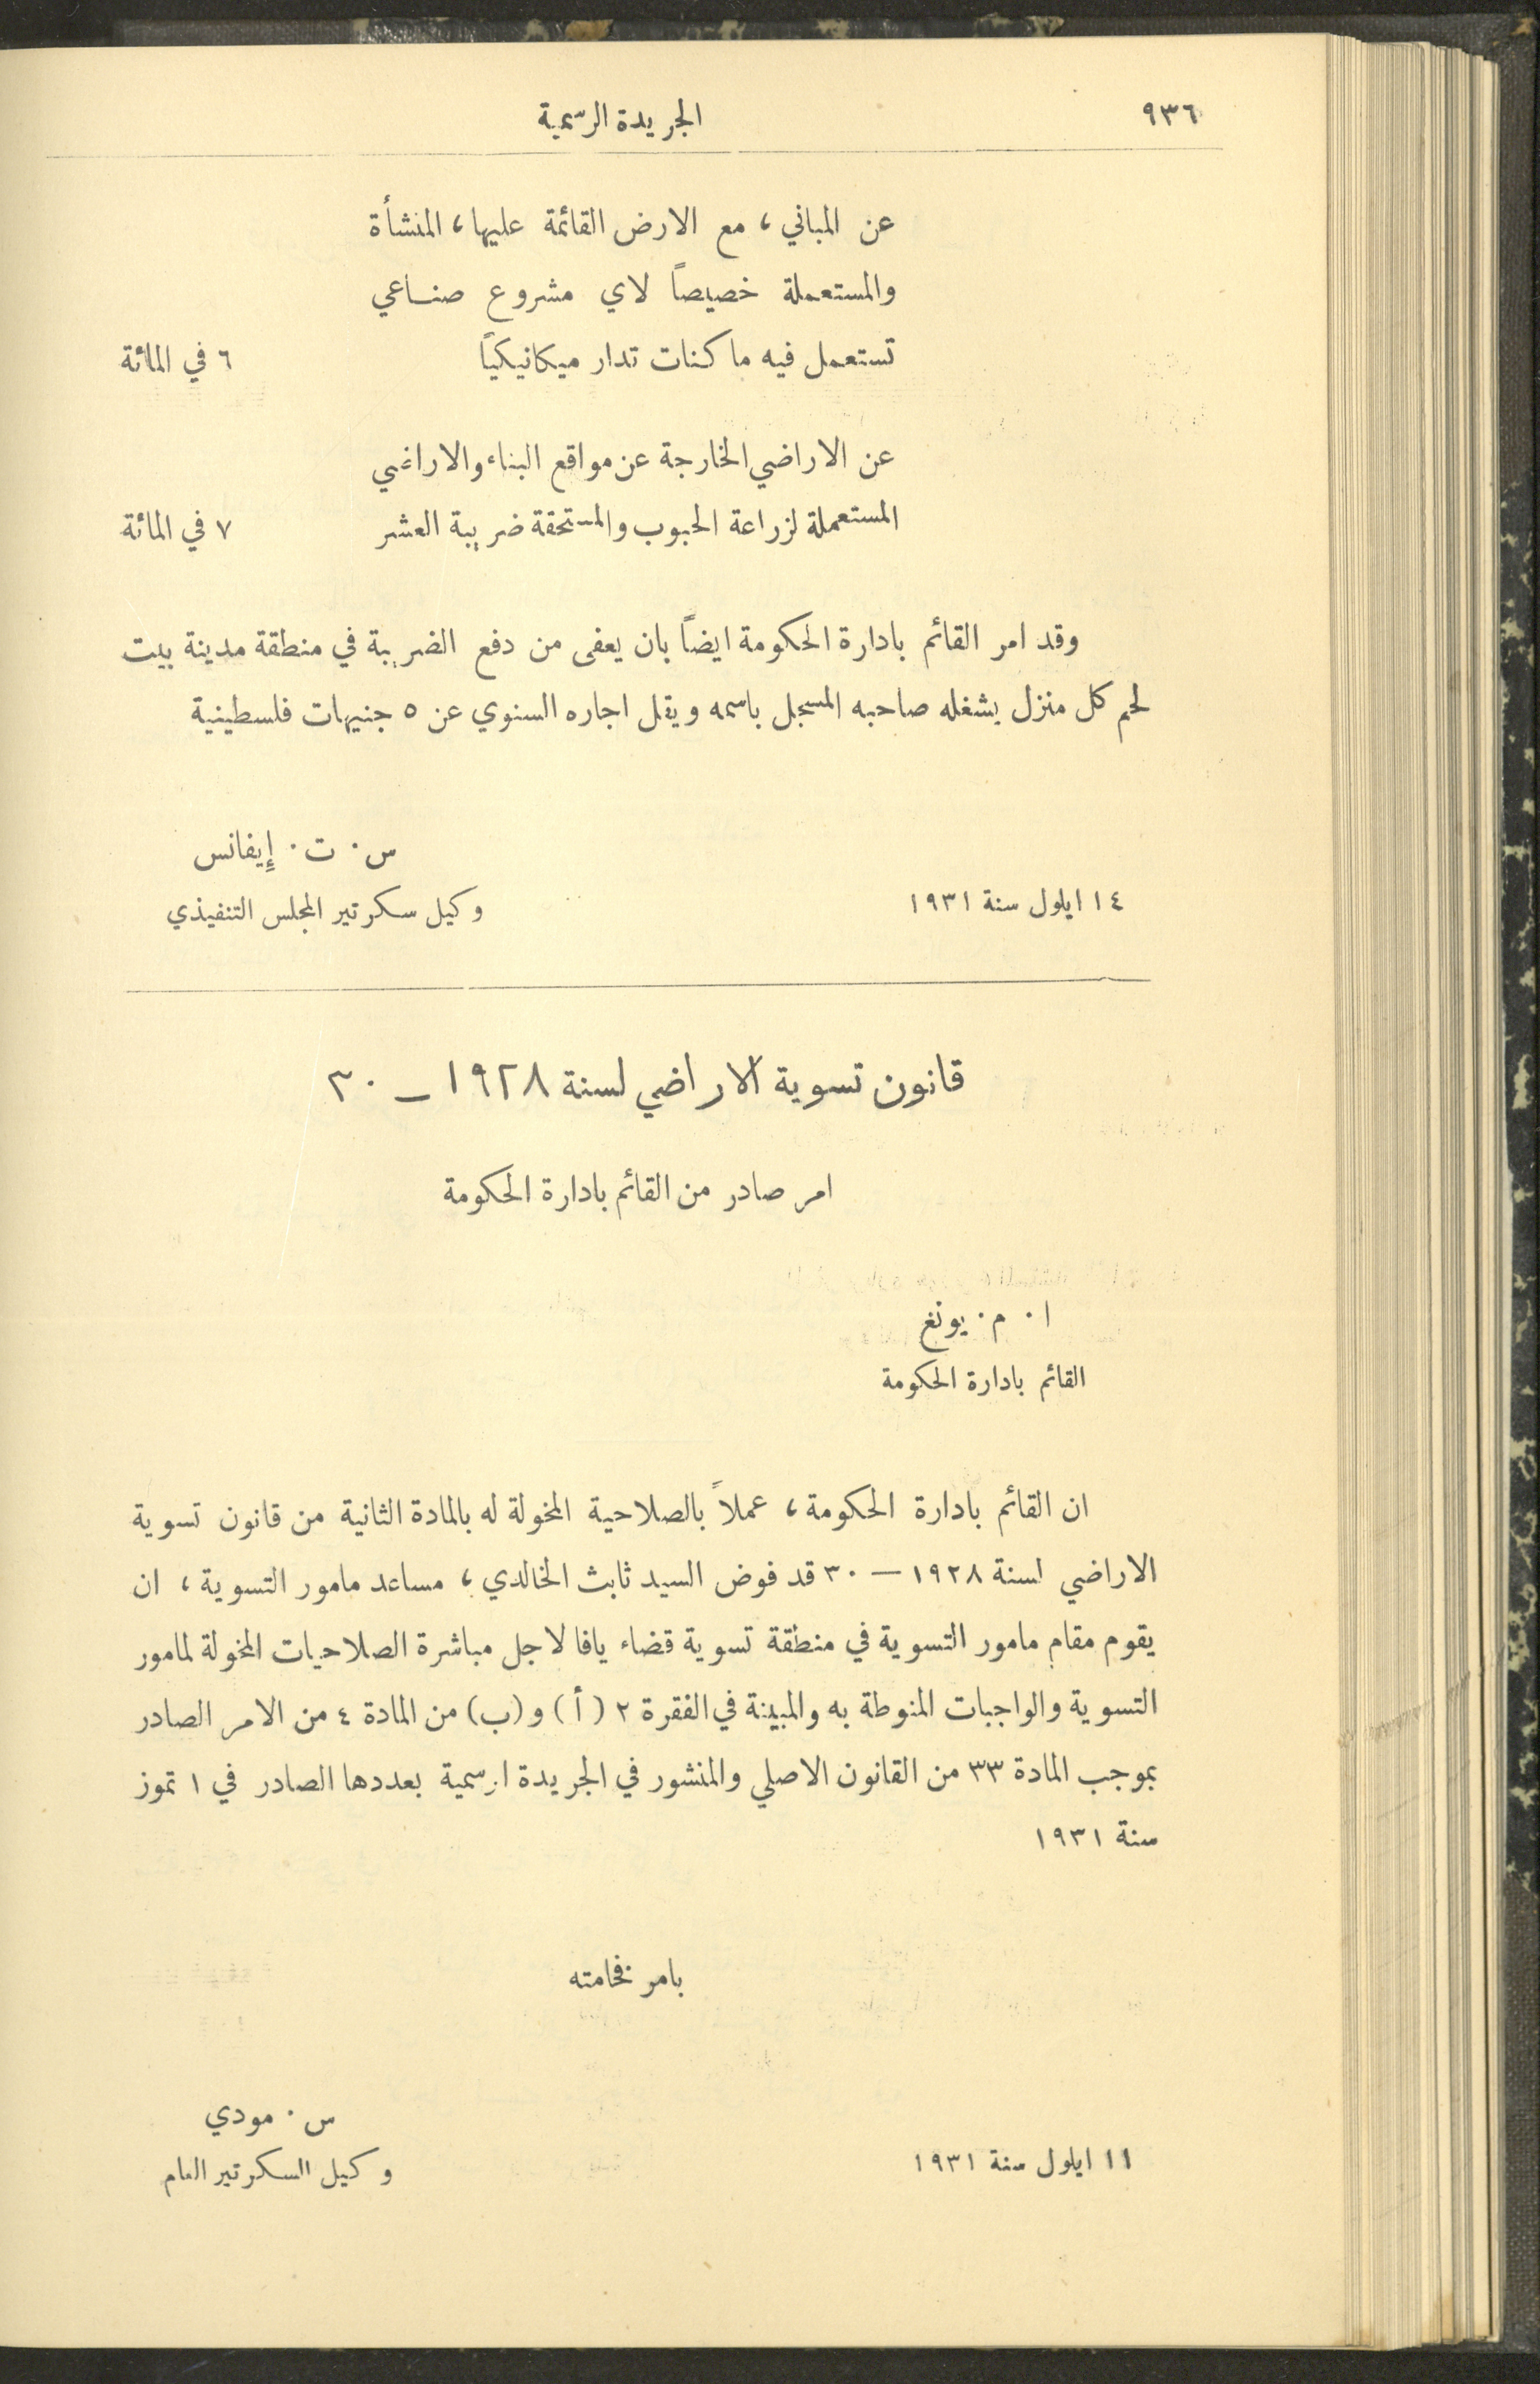 ٩٣٦ الجريدة الرسمية
عن المباني، مع الارض القائمة عليها، المنشأة
والمستعملة خصيصاً لاي مشروع صناعي
تستعمل فيه ماكنات تدار ميكانيكياً ٦ في المائة
عن الاراضي الخارجة عن مواقع البناء والاراضي
المستعملة لزراعة الحبوب والمستحقة ضريبة العشر ٧ في المائة
وقد امر القائم بادارة الحكومة ايضاً بان يعفى من دفع الضريبة في منطقة مدينة بيت
لحم كل منزل يشغله صاحبه المسجل باسمه ويقل اجاره السنوي عن ٥ جنيهات فلسطينية
س. ت. إيفانس
١٤ ايلول سنة ١٩٣١ وكيل سكرتير المجلس التنفيذي
قانون تسوية الاراضي لسنة ١٩٢٨ — ٣٠
امر صادر من القائم بادارة الحكومة
ا. م. يونغ
القائم بادارة الحكومة
ان القائم بادارة الحكومة، عملاً بالصلاحية المخولة له بالمادة الثانية من قانون تسوية
الاراضي لسنة ١٩٢٨ — ٣٠ قد فوض السيد ثابث الخالدي، مساعد مامور التسوية، ان
يقوم مقام مامور التسوية في منطقة تسوية قضاء يافا لاجل مباشرة الصلاحيات المخولة لمامور
التسوية والواجبات المنوطة به والمبينة في الفقرة ٢ (أ) و (ب) من المادة ٤ من الامر الصادر
بموجب المادة ٣٣ من القانون الاصلي والمنشور في الجريدة الرسمية بعددها الصادر في ١ تموز
سنة ١٩٣١
بامر فخامته
س. مودي
١١ ايلول سنة ١٩٣١ وكيل السكرتير العام